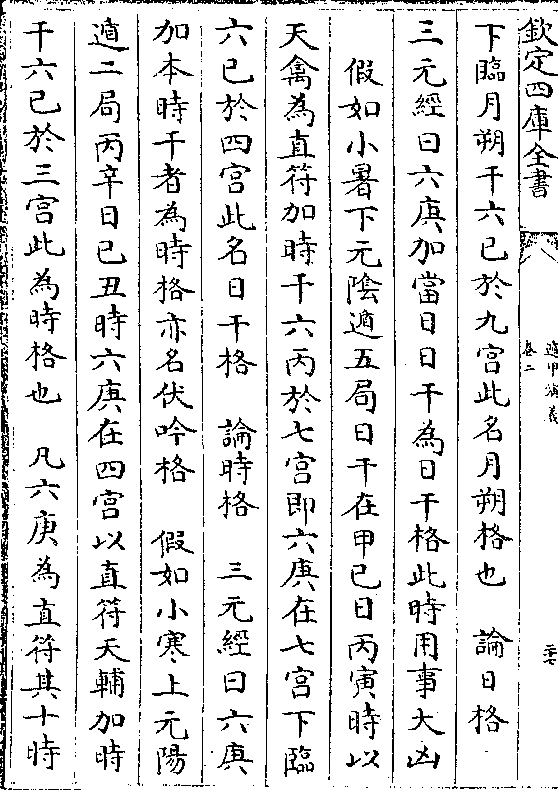 欽定四庫全書
遁甲演義
卷二
下臨月朔干六己於九宮此名月朔格也　論日格
三元經曰六庚加當日日干為日干格此時用事大凶
假如小暑下元陰遁五局日干在甲己日丙寅時以
天禽為直符加時干六丙於七宮即六庚在七宮下臨
六己於四宮此名日干格　論時格　三元經曰六庚
加本時干者為時格亦名伏吟格　假如小寒上元陽
遁二局丙辛日己丑時六庚在四宮以直符天輔加時
干六己於三宮此為時格也　凡六庚為直符其十時